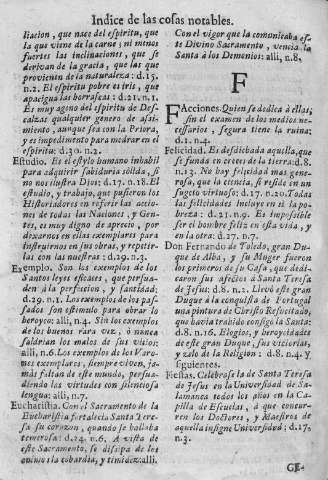 Indice de las cosas notables.
liacion, que nace del espiritu, que
la que viene de la carne; ni menos
fuertes las inclinaciones, que se
derivan de la gracia, que las que
provienen de la naturaleza: d.15.
n.2. El espiritu pobre es iris, que
apacigua las borrascas: d.21. n.1.
Es muy ageno del espiritu de Des-
calzas qualquier genero de asi-
miento, aunque sea con la Priora,
y es impedimento para medrar en el
espiritu: d.30. n.2.
Estudio. Es el estylo humano inhabil
para adquirir sabiduria sólida, si
no nos ilustra Dios: d.17. n.18. El
estudio, y trabajo, que pusieron los
Historiadores en referir las accio-
nes de todas las Naciones, y Gen-
tes, es muy digno de aprecio, por
dexarnos en ellas exemplares para
instruirnos en sus obras, y repetir-
las con las nuestras: d.29. n.3.
Exemplo. Son los exemplos de los
Santos leyes eficaces, que persua-
den à la perfeccion, y santidad:
d.29. n.1. Los exemplos de los pas-
sados son estimulo para obrar lo
heroyco: alli, n.4. Sin los exemplos
de los buenos rara vez, ò nunca
saldrian los malos de sus vicios:
alli, n.6. Los exemplos de los Varo-
nes exemplares, siempre viven, ja-
más faltan de este mundo, persua-
diendo las virtudes con silenciosa
lengua: alli.
Eucharistia. Con el Sacramento de la
Eucharistia fortalecia Santa Tere-
sa su corazon, quando se hallaba
temerosa: d.24. n.6. A vista de
este Sacramento, se disipa de los
animos la cobardia, y timidez: alli.
Con el vigor que la comunicaba es-
te Divino Sacramento, vencia la
Santa à los Demonios: alli, n.8.
F
FAcciones. Quien se dedica à ellas,
sin el examen de los medios ne-
cessarios, segura tiene la ruina:
d.1. n.4.
Felicidad. Es desdichada aquella, que
se funda en creces de la tierra: d.8.
n.13. No hay felicidad mas gene-
rosa, que la ciencia, si reside en un
sugeto virtuoso: d.17. n.20. Todas
las felicidades incluye en sì la po-
breza: d.21. n.9. Es imposible
ser el hombre feliz en esta vida, y
en la otra: d.27. n.7.
Don Fernando de Toledo, gran Du-
que de Alba, y su Muger fueron
los primeros de su Casa, que dedi-
caron sus afectos à Santa Teresa
de Jesus: d.8. n.2. Llevò este gran
Duque à la conquista de Portugal
una pintura de Christo Resucitado,
que havia trahido consigo la Santa:
d.8. n.16. Elogios, y heroycidades
de este gran Duque, sus victorias,
y zelo de la Religion: d.8. n.4. y
siguientes.
Fiestas. Celebrose la de Santa Teresa
de Jesus en la Universidad de Sa-
lamanca todos los años en la Ca-
pilla de Escuelas, à que concur-
ren los Doctores, y Maestros de
aquella insigne Universidad: d.17.
n.3.